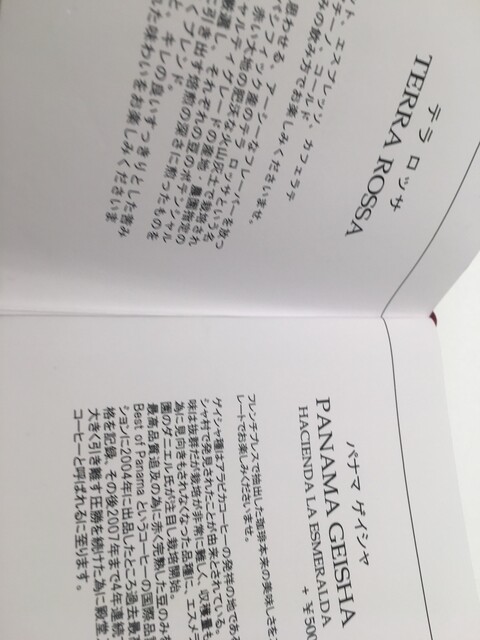 テラ ロッサ
TERRA ROSSA
ド、エスプレッソ、カフェラテ
チーノ、コールド
みの飲み方でお楽しみくださいませ。
思わせる、アーシーなフレーバーを放つ
インツイック産のテラ ロッサという名
赤い大地の肥沃な火山灰土で栽培され
厳選し、それぞれの産地、農園指定の
に引き出す焙煎の深さに拘ったものを
くブレンド。
と、キレの良いすっきりとした苦み
した味わいをお楽しみくださいま
パナマ ゲイシャ
PANAMA GEISHA
HACIENDA LA ESMERALDA
+ ¥500
フレンチプレスで抽出した珈琲本来の美味しさを
レートでお楽しみくださいませ。
ゲイシャ種はアラビカコーヒーの発祥の地である
シャ村で発見されたことが由来とされている。
味は抜群だが栽培が非常に難しく、収穫量も
為に見向きもされなくなった品種に、エスメラ
園のダニエル氏が注目し栽培開始。
最高品質追及の為に赤く完熟した豆のみを
Best of Panama というコーヒーの国際品
ションに2004年に出品したところ過去最
格を記録、その後2007年まで4年連続
大きく引き離す圧勝を続けた為に殿堂
コーヒーと呼ばれるに至ります。